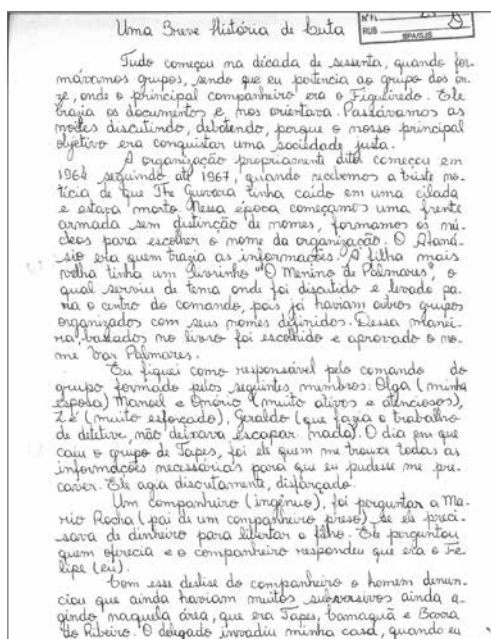 Uma Breve História de Luta
Nº FL
RUB
SPA/SJS
Tudo começou na década de sessenta, quando for
mávamos grupos, sendo que eu pertencia ao grupo dos on
ze, onde o principal companheiro era o Figueiredo. Ele
trazia os documentos e nos orientava. Passávamos as
noites discutindo, debatendo, porque o nosso principal
objetivo era conquistar uma sociedade justa.
A organização propriamente dita começou em
1964 seguindo até 1967, quando recebemos a triste no-
tícia de que The Guevara tinha caído em uma cilada
e estava morto. Nessa época começamos uma frente
armada sem distinção de nomes, formamos os nú
cleos para escolher o nome da organização. O Ataná-
sio era quem trazia as informações. A filha mais
velha tinha um livrinho "O Menino de Palmares", o
qual serviu de tema onde foi discutido e levado pa-
ra o centro do comando, pois já haviam outros grupos
organizados com seus nomes definidos. Dessa manei-
ra, baseados no livro foi escolhido e aprovado o no-
me Var Palmares.
Eu fiquei como responsável pelo comando do
grupo formado pelos seguintes membros: Olga (minha
esposa) Manoel e Onório (muito ativos e atenciosos),
Zé (muito esforçado), Geraldo (que fazia o trabalho
de detetive, não deixava escapar nada). O dia em que
caiu o grupo de Tapes, foi ele quem me trouxe todas as
informações necessárias para que eu pudesse me pre-
caver. Ele agia discretamente, disfarçado.
Um companheiro (ingênuo), foi perguntar a Ma-
rio Rocha (pai de um companheiro preso) se ele preci-
sava de dinheiro para libertar o filho. Ele perguntou
quem oferecia e o companheiro respondeu que era o Fe-
lipe (eu).
Com esse deslise do companheiro o homem denun-
ciou que ainda haviam muitos subversivos ainda a-
gindo naquela área, que era Tapes, Camaquã e Barra
do Ribeiro. O delegado invadiu minha casa, quando eu